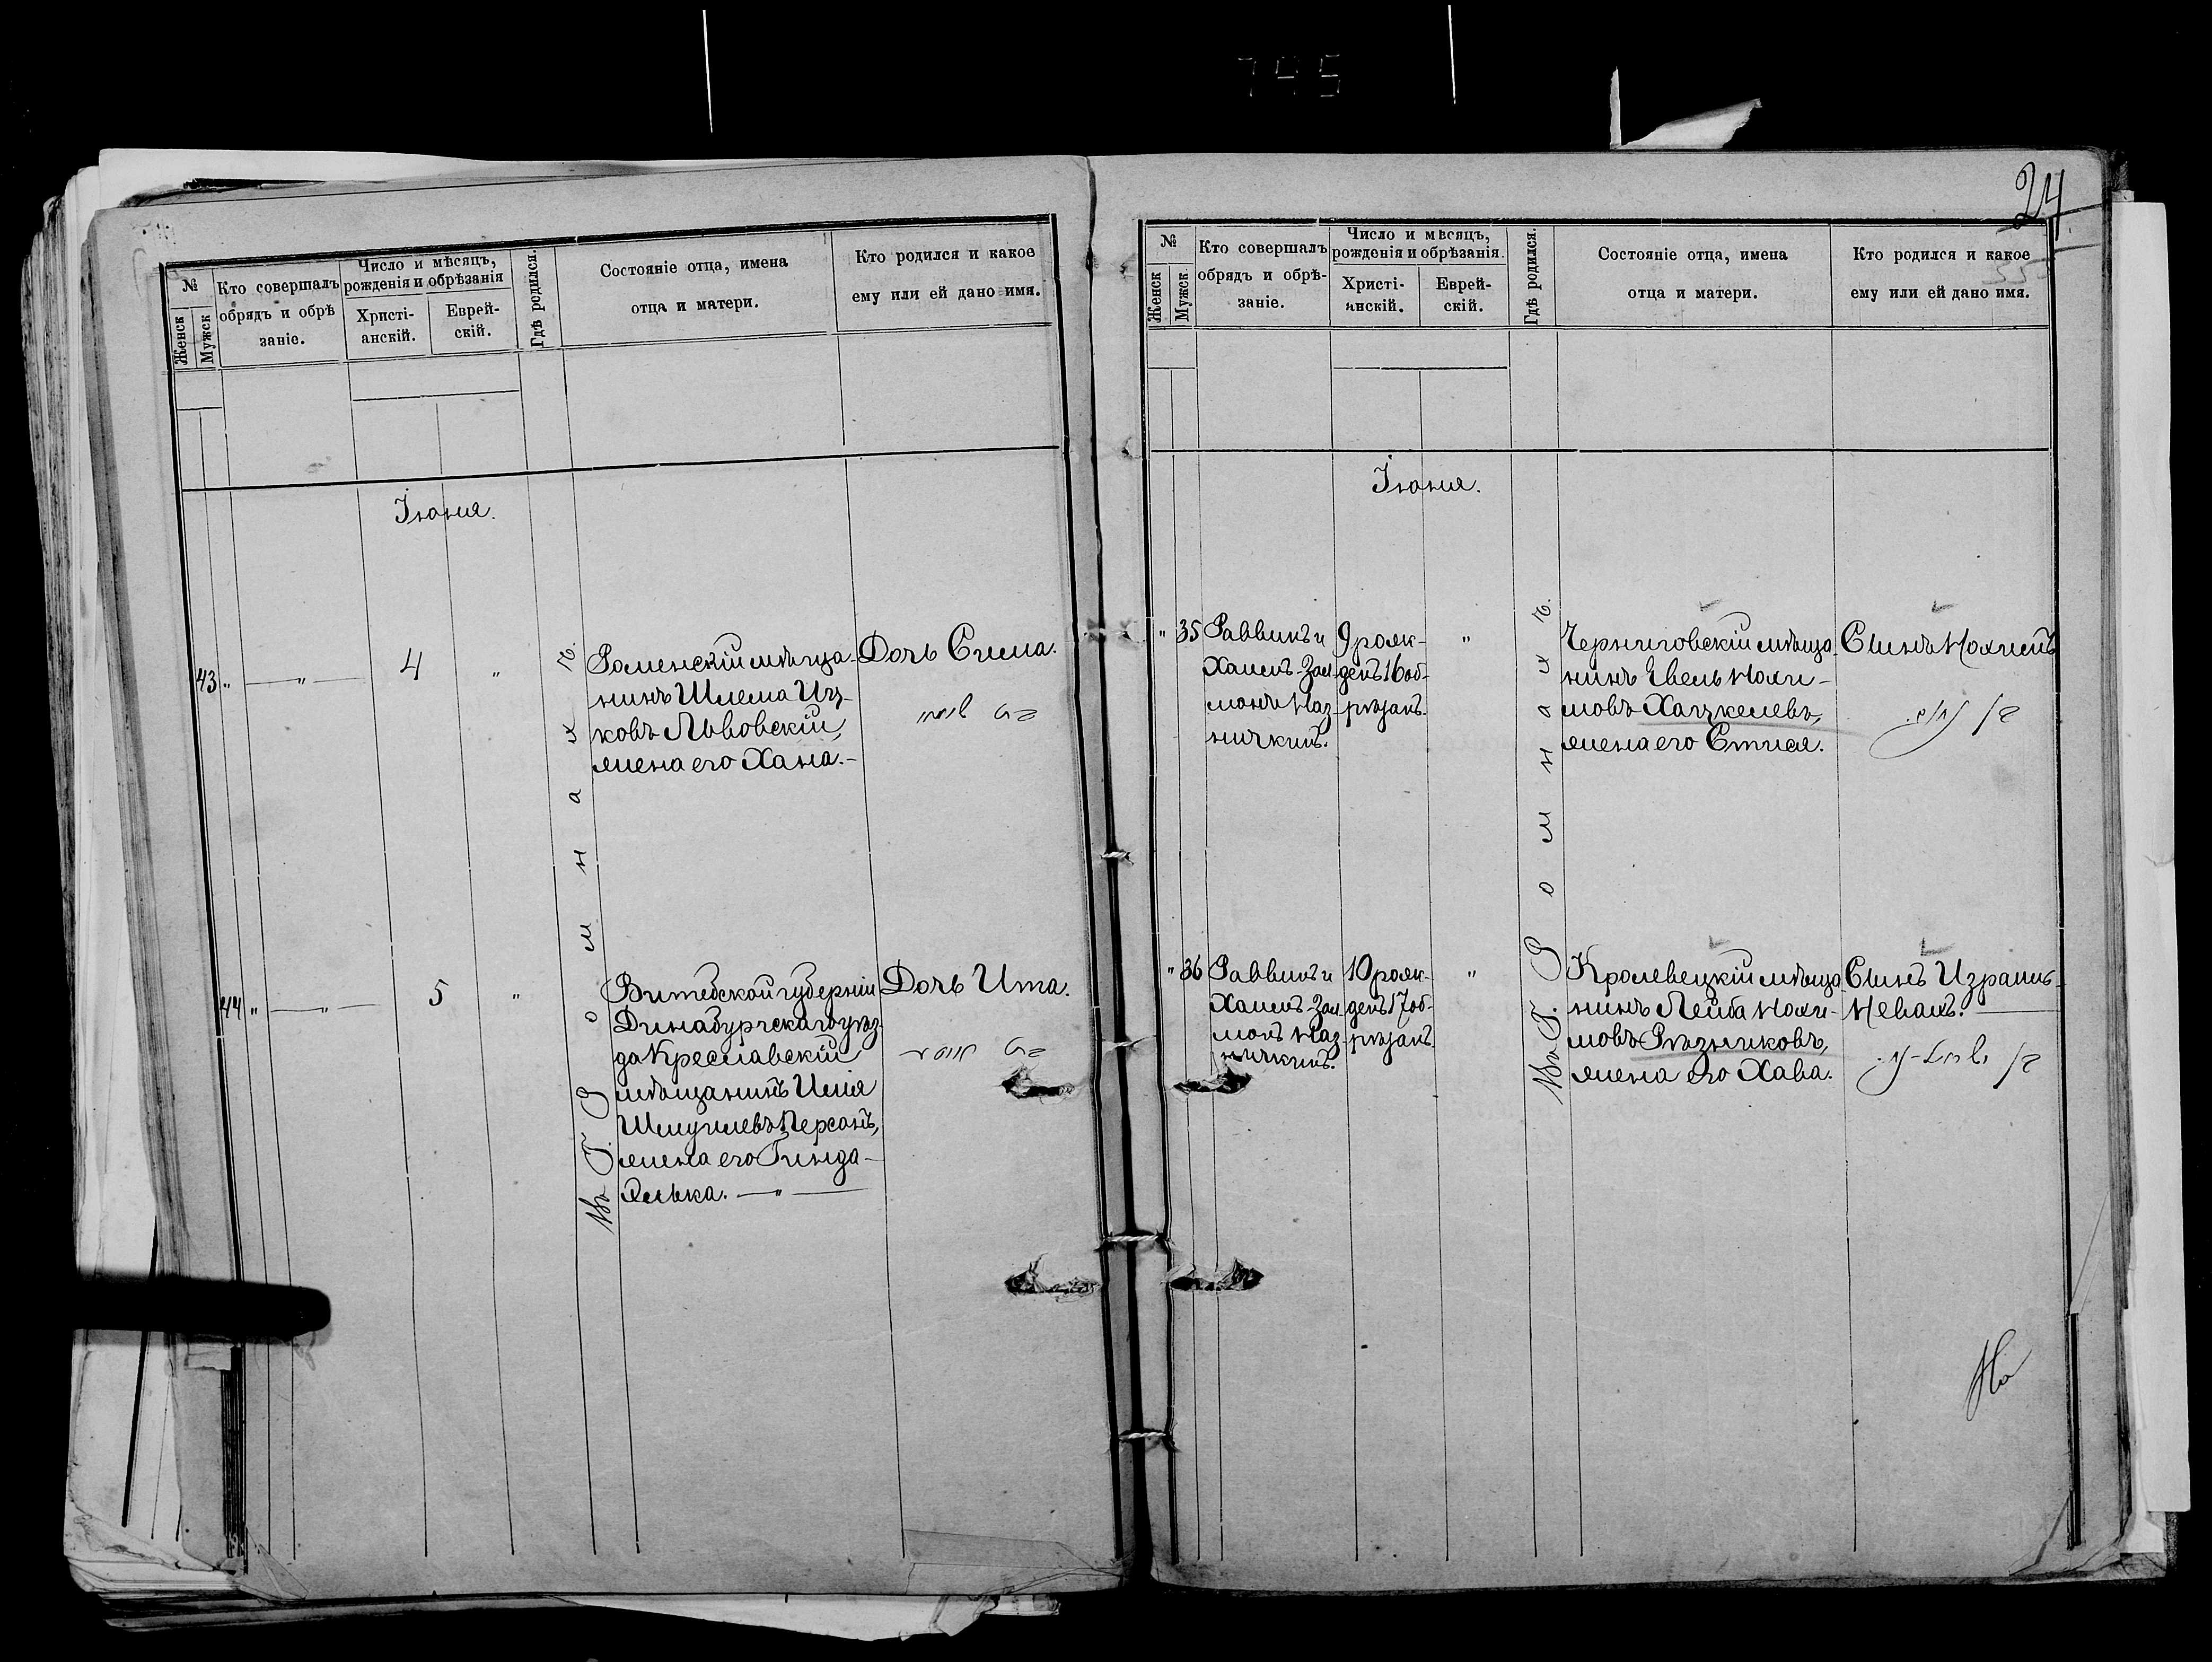 24
№
Женск
Мужск
Кто совершалъ
обрядъ и обрѣ
заніе.
Число и мѣсяцъ,
рожденія и обрѣзанія
Христі-
анскій.
Еврей-
скій.
Гдѣ родился.
Состояніе отца, имена
отца и матери.
Кто родился и какое
ему или ей дано имя.
Іюня.
Въ Г. Ромнахъ.
43 " — " — 4 "
Роменскій мѣща-
нинъ Шлема Иц-
ковъ Львовскій,
жена его Хана. –
Дочь Сима.
44 " — " — 5 "
Витебской губерніи
Динабургскаго уѣз-
да Креславскій
мѣщанинъ
Шмуилевъ Персонъ,
жена его Гинда-
Элька. — " —
Дочь Ита.
№
Женск
Мужск.
Кто совершалъ
обрядъ и обрѣ-
заніе.
Число и мѣсяцъ,
рожденія и обрѣзанія.
Христі-
анскій.
Еврей-
скій.
Гдѣ родился.
Состояніе отца, имена
отца и матери.
Кто родился и какое
ему или ей дано имя.
Іюня.
Въ Г. Ромнахъ.
" 35
Раввинъ и
Хаимъ-Зал-
монъ Маз-
ничкинъ.
9 рож-
денъ 16 об-
рѣзанъ.
"
Черниговскій мѣща-
нинъ
мовъ Хацкелевъ,
жена его Стися.
Сынъ Нохимъ
" 36
Раввинъ и
Хаимъ-Зал-
монъ Маз-
ничкинъ.
10 рож-
денъ 17 об-
рѣзанъ.
"
Кролевецкій мѣща-
нинъ Лейба Нохи-
мовъ Рѣзниковъ,
жена его Хава.
Сынъ Израиль-
Невахъ. —
На